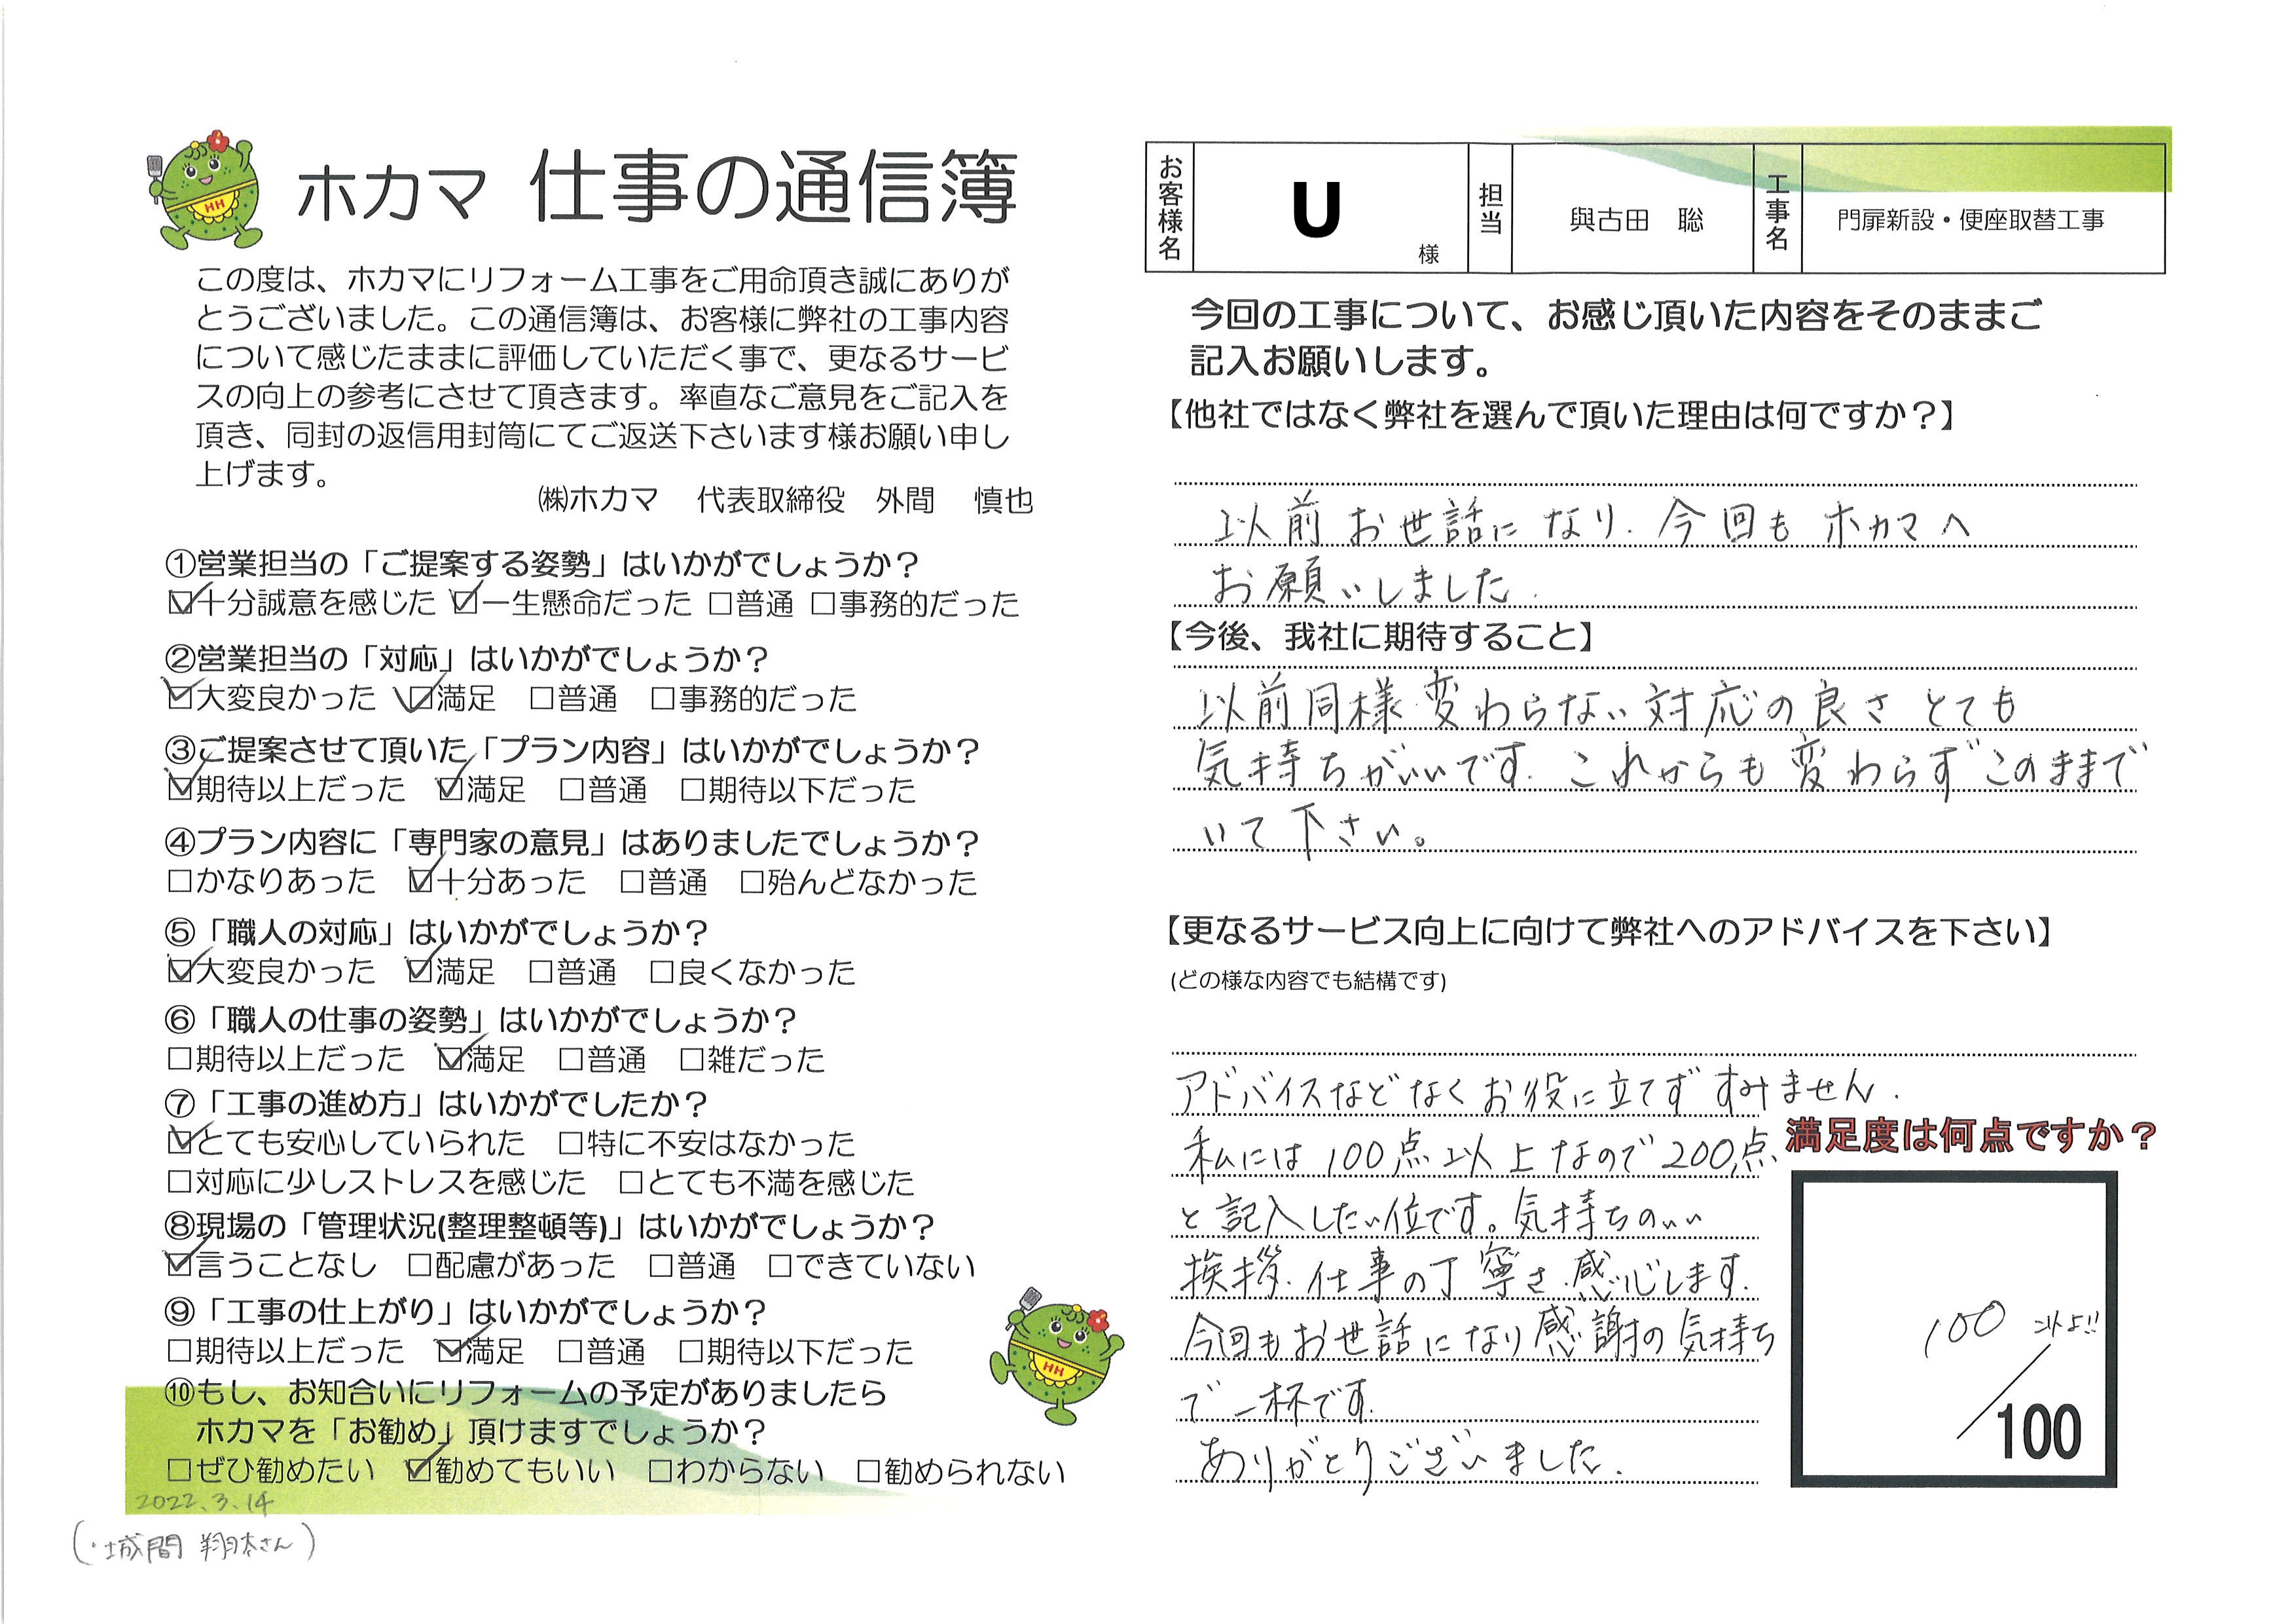 ホカマ 仕事の通信簿
この度は、ホカマにリフォーム工事をご用命頂き誠にありが
とうございました。この通信簿は、お客様に弊社の工事内容
について感じたままに評価していただく事で、更なるサービ
スの向上の参考にさせて頂きます。率直なご意見をご記入を
頂き、同封の返信用封筒にてご返送下さいます様お願い申し
上げます。
㈱ホカマ 代表取締役 外間 慎也
①営業担当の「ご提案する姿勢」はいかがでしょうか？
☑十分誠意を感じた ☑一生懸命だった □普通 □事務的だった
②営業担当の「対応」はいかがでしょうか？
☑大変良かった ☑満足 □普通 □事務的だった
③ご提案させて頂いた「プラン内容」はいかがでしょうか？
☑期待以上だった ☑満足 □普通 □期待以下だった
④プラン内容に「専門家の意見」はありましたでしょうか？
□かなりあった ☑十分あった □普通 □殆んどなかった
⑤「職人の対応」はいかがでしょうか？
☑大変良かった ☑満足 □普通 □良くなかった
⑥「職人の仕事の姿勢」はいかがでしょうか？
□期待以上だった ☑満足 □普通 □雑だった
⑦「工事の進め方」はいかがでしたか？
☑とても安心していられた □特に不安はなかった
□対応に少しストレスを感じた □とても不満を感じた
⑧現場の「管理状況(整理整頓等)」はいかがでしょうか？
☑言うことなし □配慮があった □普通 □できていない
⑨「工事の仕上がり」はいかがでしょうか？
□期待以上だった ☑満足 □普通 □期待以下だった
⑩もし、お知合いにリフォームの予定がありましたら
ホカマを「お勧め」頂けますでしょうか？
□ぜひ勧めたい ☑勧めてもいい □わからない □勧められない
2022.3.14
(・城間 翔太さん)
お客様名 U 様 担当 與古田 聡 工事名 門扉新設・便座取替工事
今回の工事について、お感じ頂いた内容をそのままご
記入お願いします。
【他社ではなく弊社を選んで頂いた理由は何ですか？】
以前お世話になり.今回もホカマへ
お願いしました.
【今後、我社に期待すること】
以前同様変わらない対応の良さとても
気持ちがいいです.これからも変わらずこのままで
いて下さい。
【更なるサービス向上に向けて弊社へのアドバイスを下さい】
(どの様な内容でも結構です)
アドバイスなどなくお役に立てずすみません.
私には100点以上なので200点
と記入したい位です。気持ちのいい
挨拶.仕事の丁寧さ.感心します.
今回もお世話になり感謝の気持ち
で一杯です.
ありがとうございました.
満足度は何点ですか？
100 以上!!
／100
HH
HH